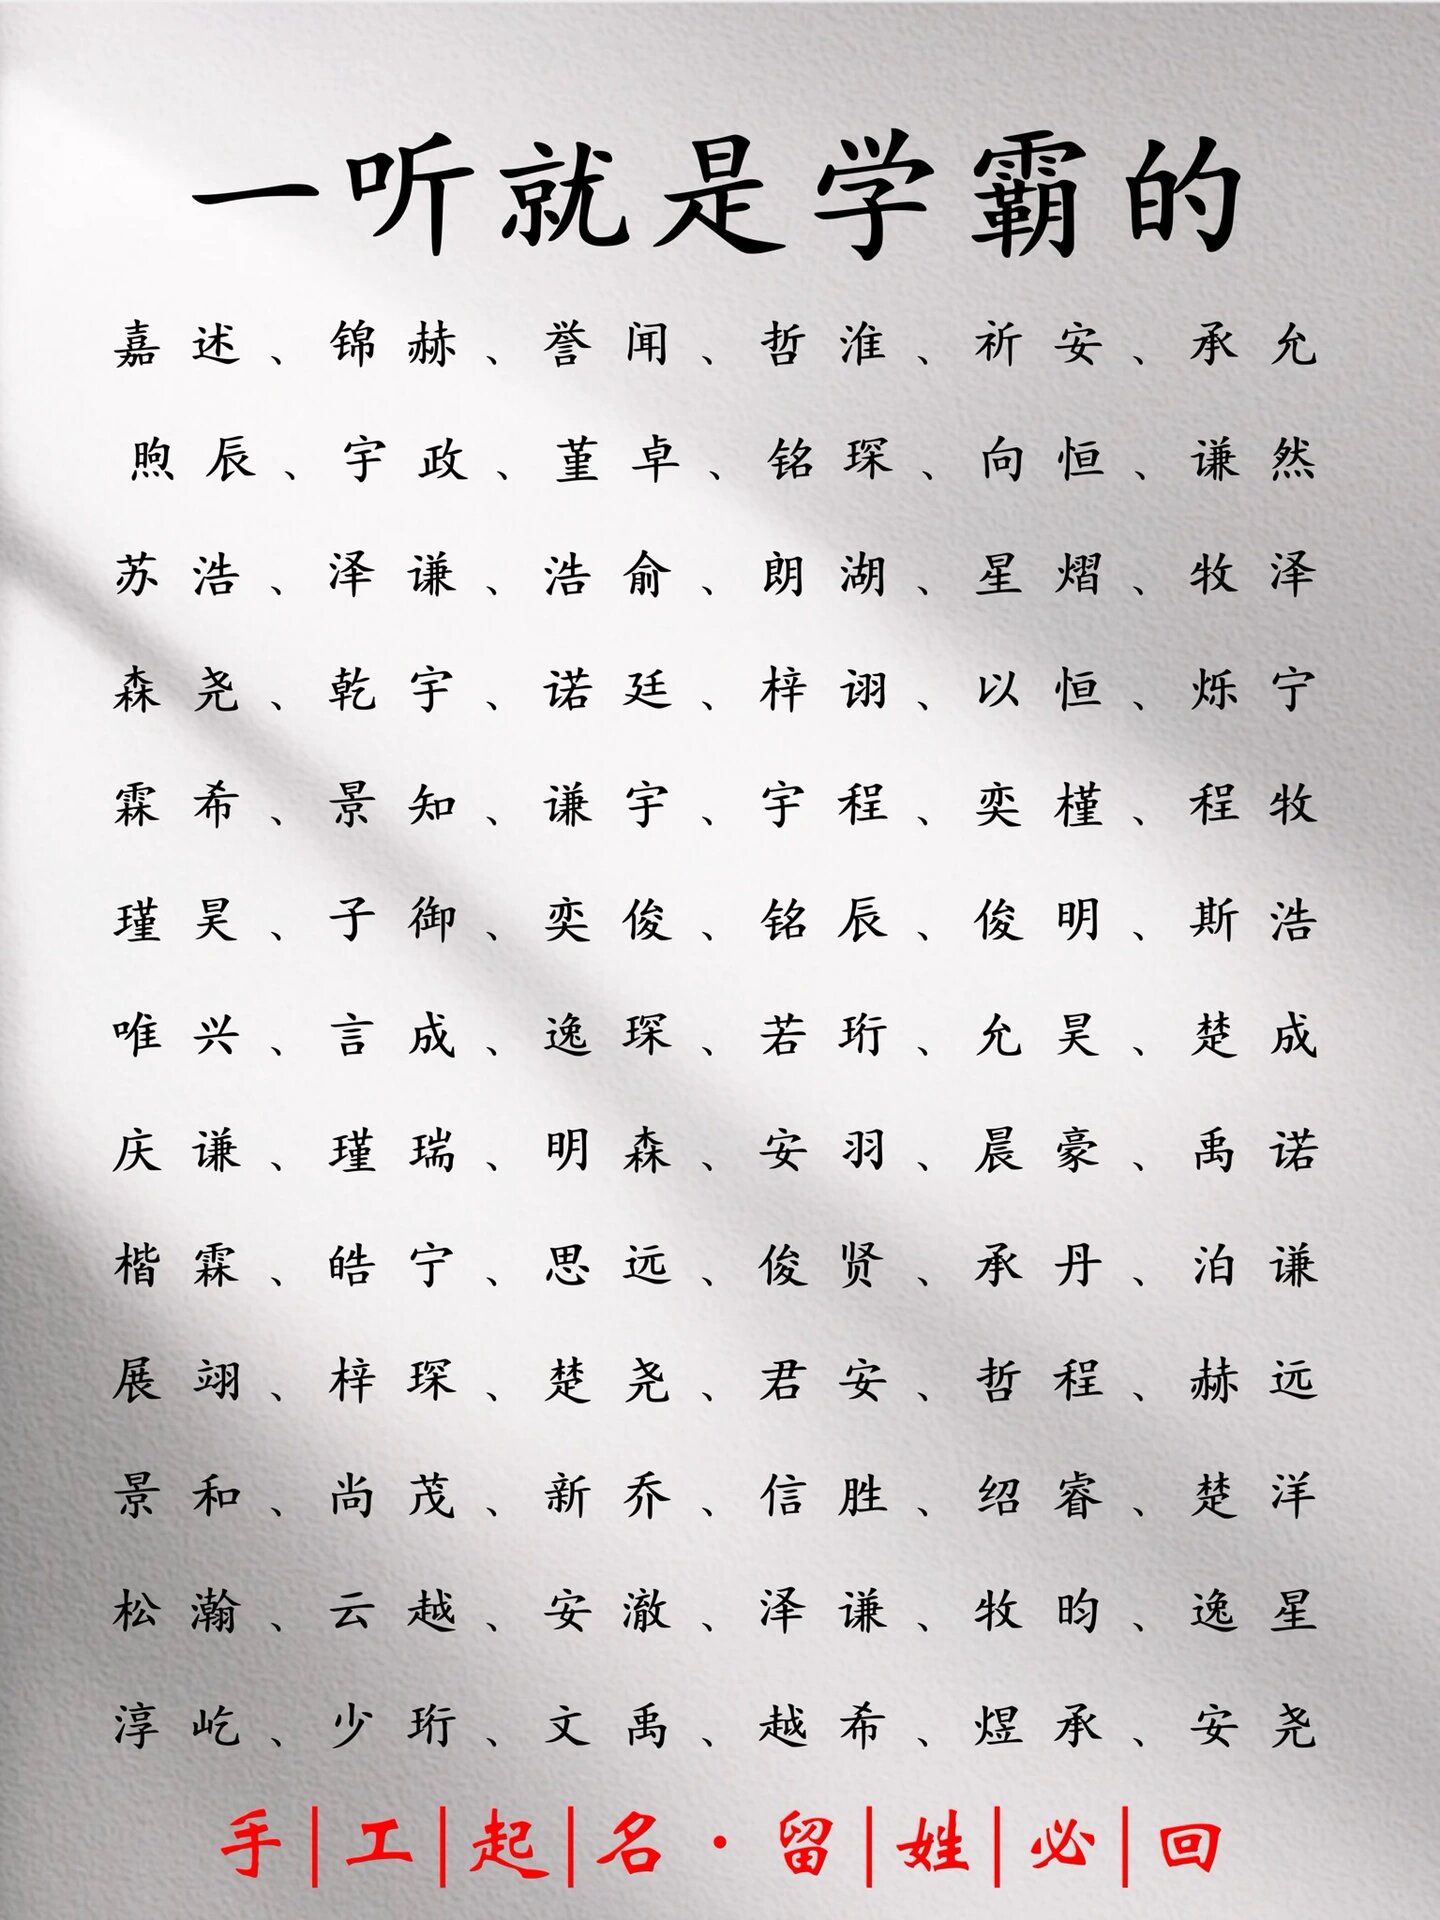 一听就是学霸的
嘉述、锦赫、誉闻、哲淮、祈安、承允
煦辰、宇政、堇卓、铭琛、向恒、谦然
苏浩、泽谦、浩俞、朗湖、星熠、牧泽
森尧、乾宇、诺廷、梓诩、以恒、烁宁
霖希、景知、谦宇、宇程、奕槿、程牧
瑾昊、子御、奕俊、铭辰、俊明、斯浩
唯兴、言成、逸琛、若珩、允昊、楚成
庆谦、瑾瑞、明森、安羽、晨豪、禹诺
楷霖、皓宁、思远、俊贤、承丹、泊谦
展翊、梓琛、楚尧、君安、哲程、赫远
景和、尚茂、新乔、信胜、绍睿、楚洋
松瀚、云越、安澈、泽谦、牧昀、逸星
淳屹、少珩、文禹、越希、煜承、安尧
手|工|起|名·留|姓|必|回